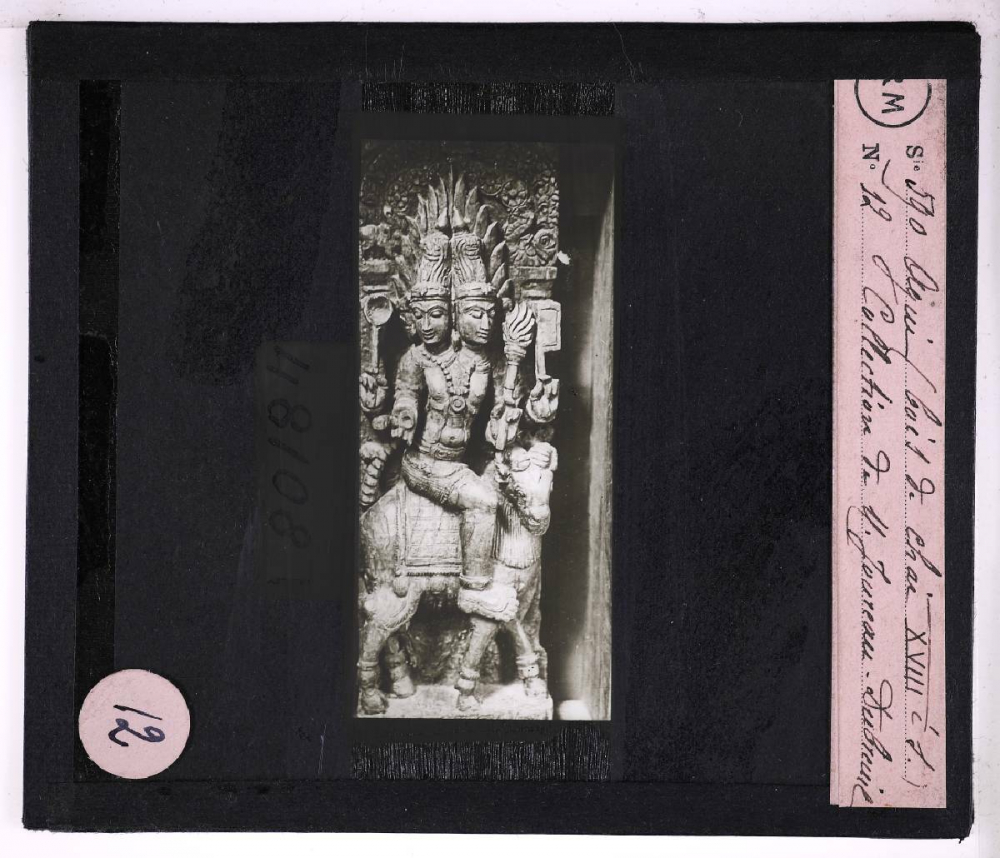 RM
Sie 590 Agni (bois de char XVIII e s.)
No 12 Collection de M. Jouveau-Dubreuil
12
118108